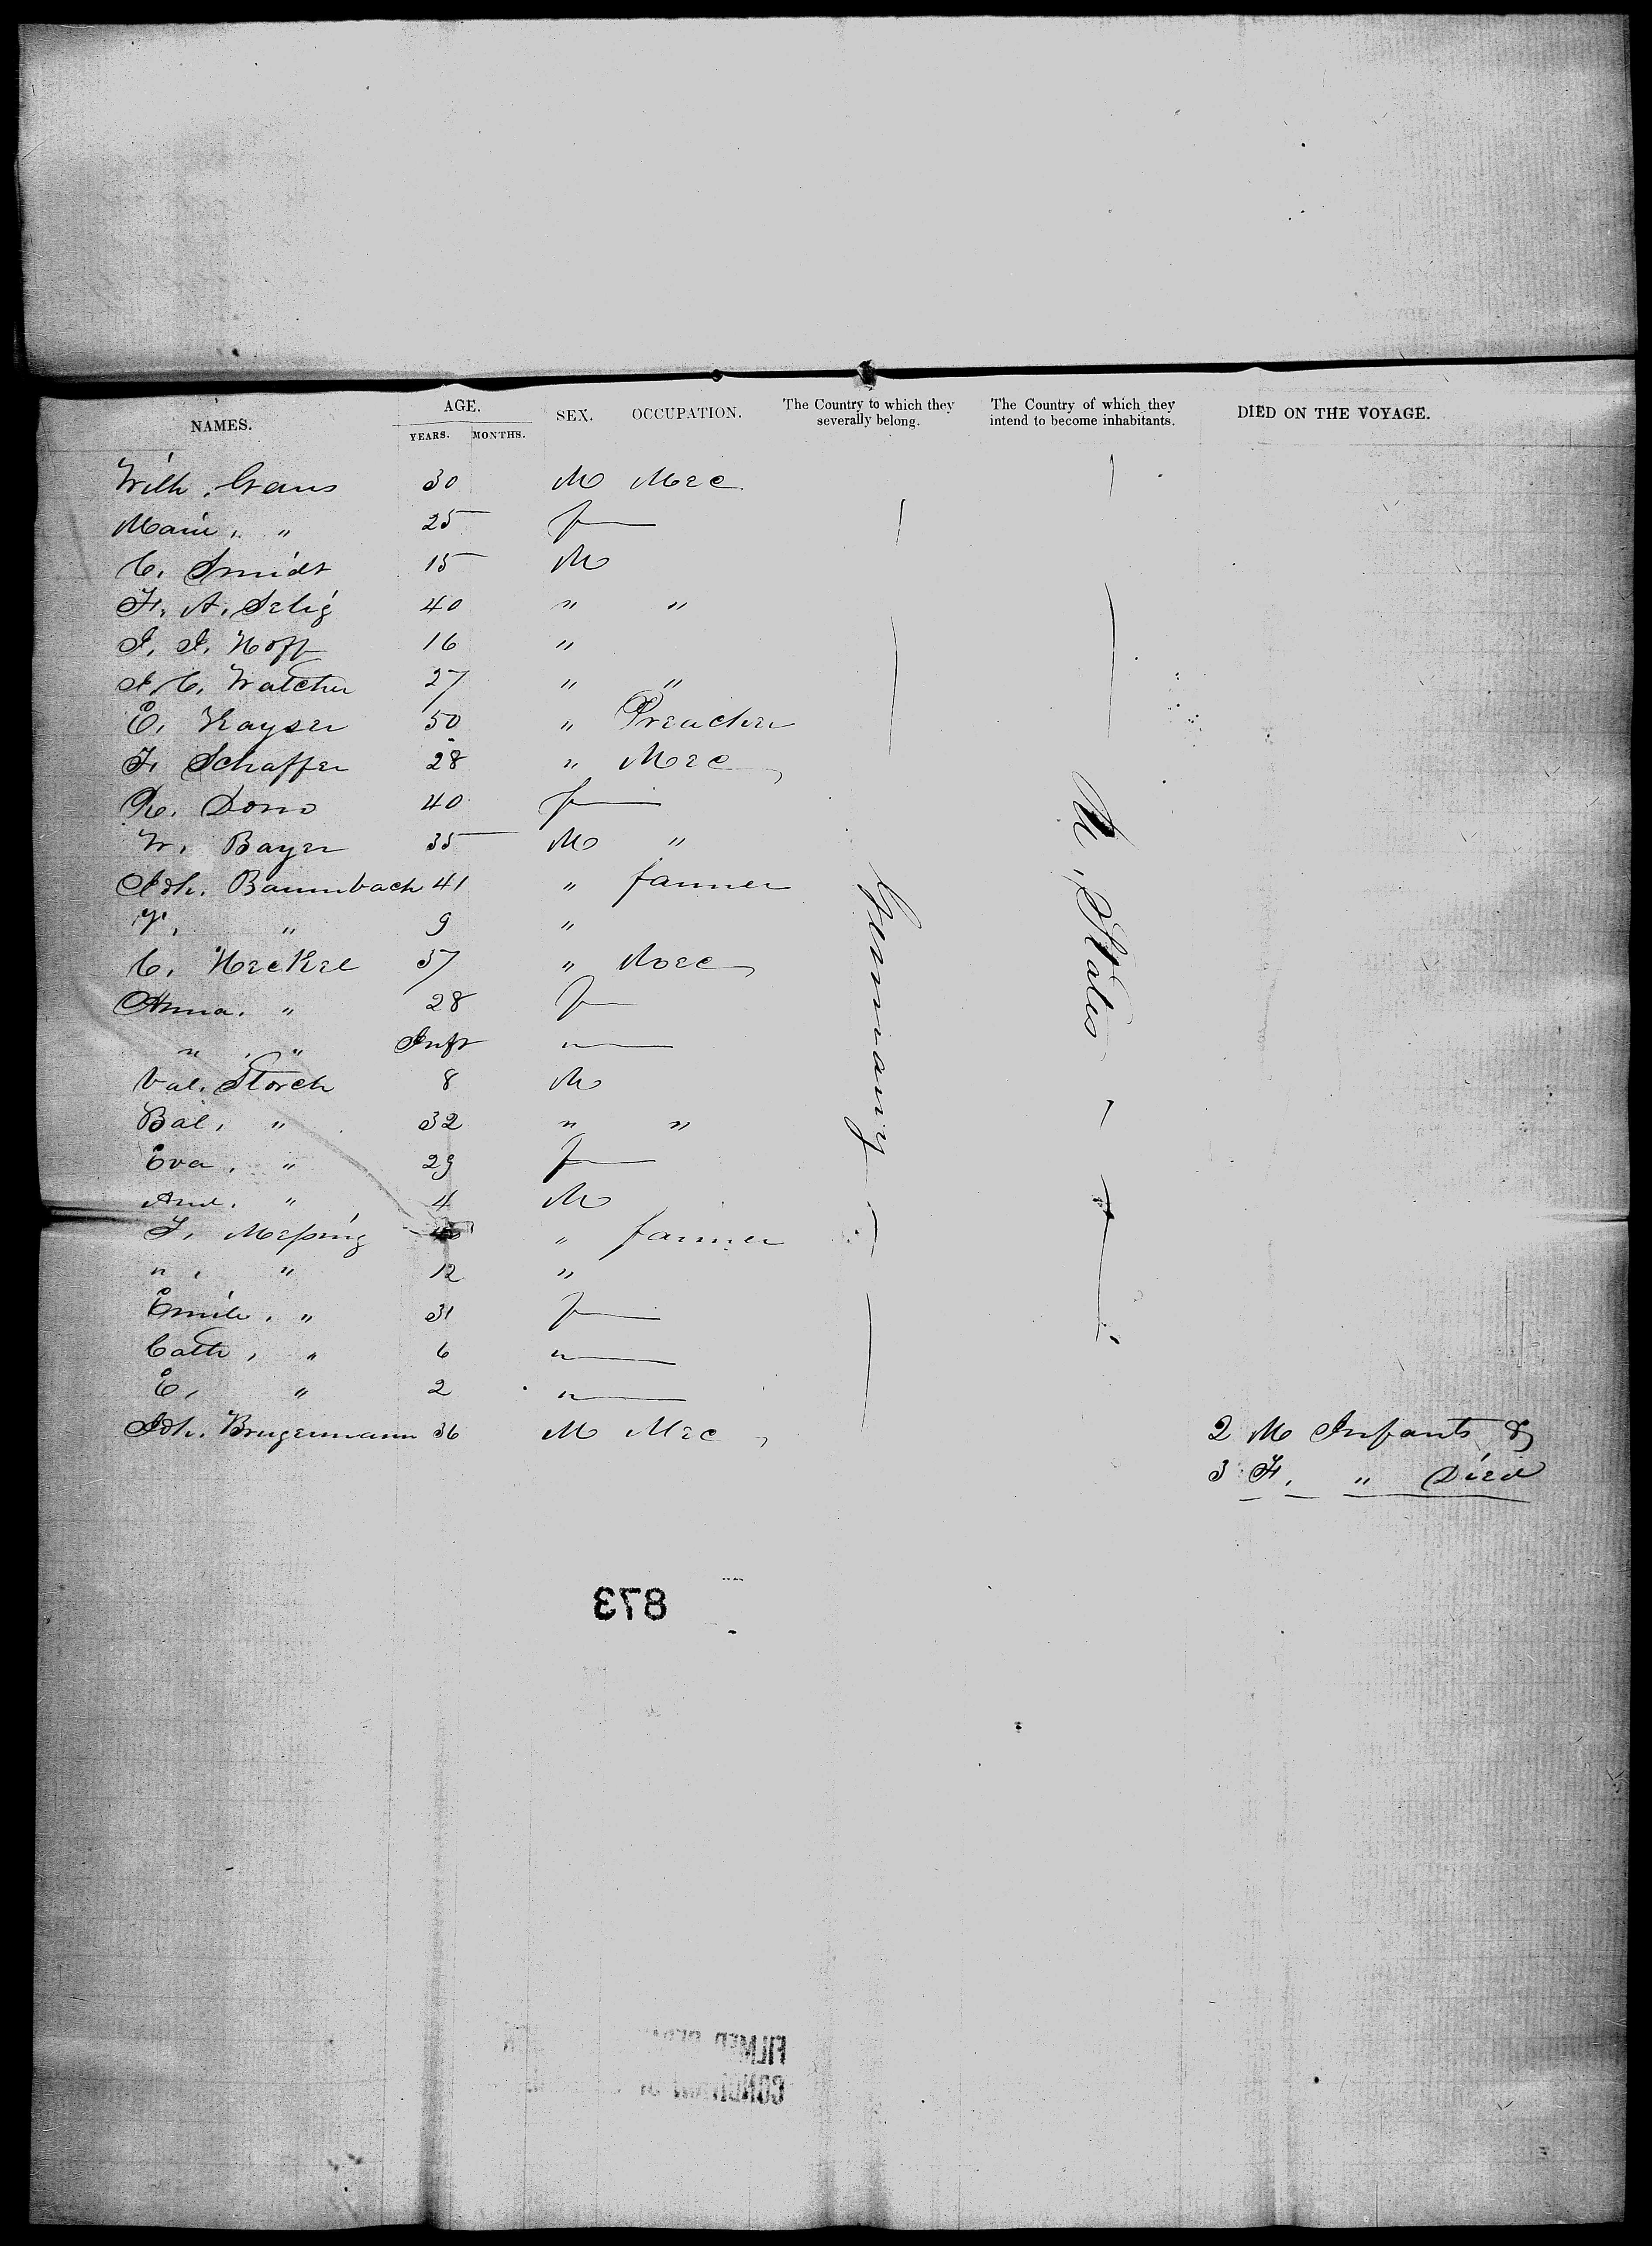 NAMES. AGE. YEARS. MONTHS. SEX. OCCUPATION. The Country to which they severally belong. The Country of which they intend to become inhabitants. DIED ON THE VOYAGE.
Wilh. Gans 30 M Mec
Marie, " 25 f
C. Smidt 15 M
F. A. Selig 40 " "
J. J. Hoff 16 "
J. C. Watcher 27 " "
E. Kayser 50 " Preacher
F. Schaffer 28 " Mec
R. Dorn 40 f
W. Bayer 35 M "
Joh. Baumbach 41 " farmer
V. " 9 "
C. Heckel 37 " Mec
Anna. " 28 f
" " Inft "
Val. Storch 8 M
Bal. " 32 " "
Eva. " 29 f
And. " 4 M
F. Messing " farmer
" " 12 "
Emile. " 31 f
Cath, " 6 "
E. " 2 "
Joh. Brugemann 36 M Mec
Germany
U. States
2 M Infants &
3 F. " Died
873
FILMED
CONDITION OF